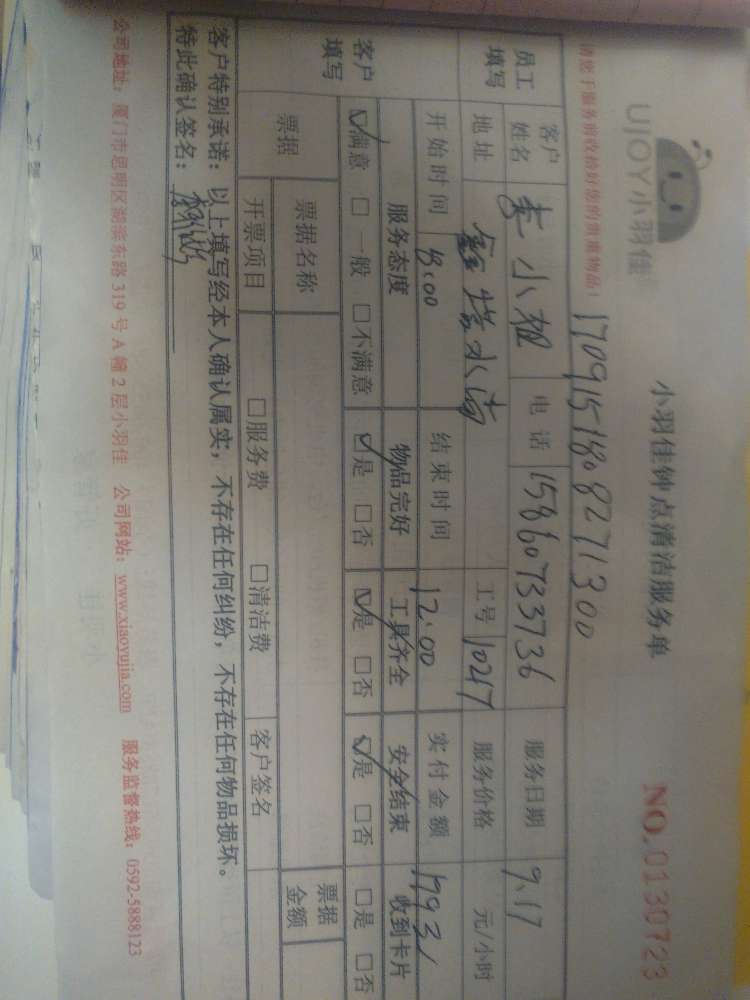 UJOY小羽佳
小羽佳钟点清洁服务单
NO.0130723
请您于服务前收拾好您的贵重物品！
1709151808271300
员工填写 客户姓名 小姐 电话 15860733736 服务日期 9.17
地址 水湾 工号 10247 服务价格 元/小时
客户填写 开始时间 8:00 结束时间 12:00 实付金额
服务态度 物品完好 工具齐全 安全结束 收到卡片
☑满意 □一般 □不满意 ☑是 □否 ☑是 □否 ☑是 □否 □是 □否
票据 票据名称 票据金额
开票项目 □服务费 □清洁费 客户签名
客户特别承诺：以上填写经本人确认属实，不存在任何纠纷，不存在任何物品损坏。
特此确认签名：
公司地址：厦门市思明区湖滨东路319号A幢2层小羽佳 公司网站：www.xiaoyujia.com 服务监督热线：0592-5888123